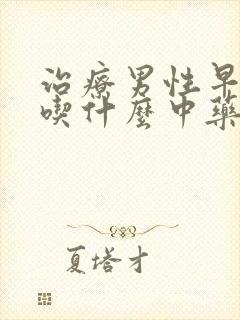 治療男性早
喫什麼中藥
夏塔才